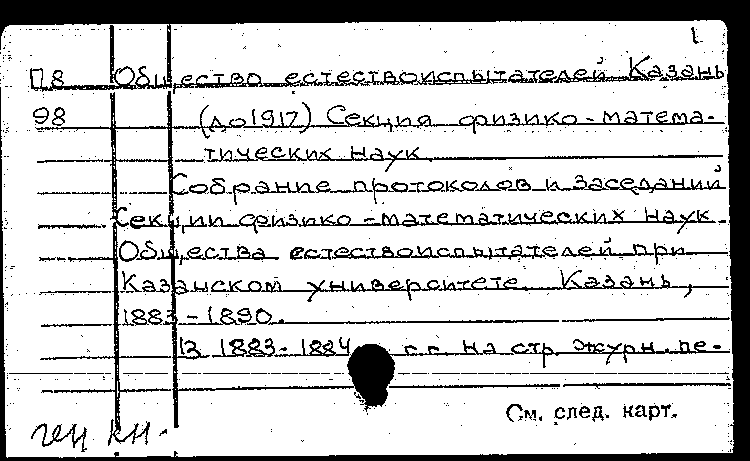 1
П8 Общество естествоиспытателей Казань
98 (до 1917) Секция физико-матема-
тических наук.
Собрание протоколов и заседаний
Секции физико-математических наук
Общества естествоиспытателей при
Казанском университете. Казань,
1883-1890.
1883-1884 г.г. на стр. журн. пе-
См. след. карт.